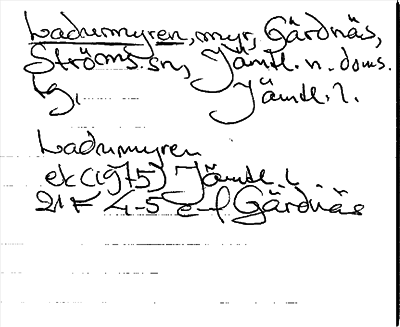 Ladumyren, myr, Gärdnäs,
Ströms sn, Jämtl. n. doms.
tg. Jämtl. l.
Ladumyren
ek (1975) Jämtl. l.
21 F 4-5 e-f Gärdnäs